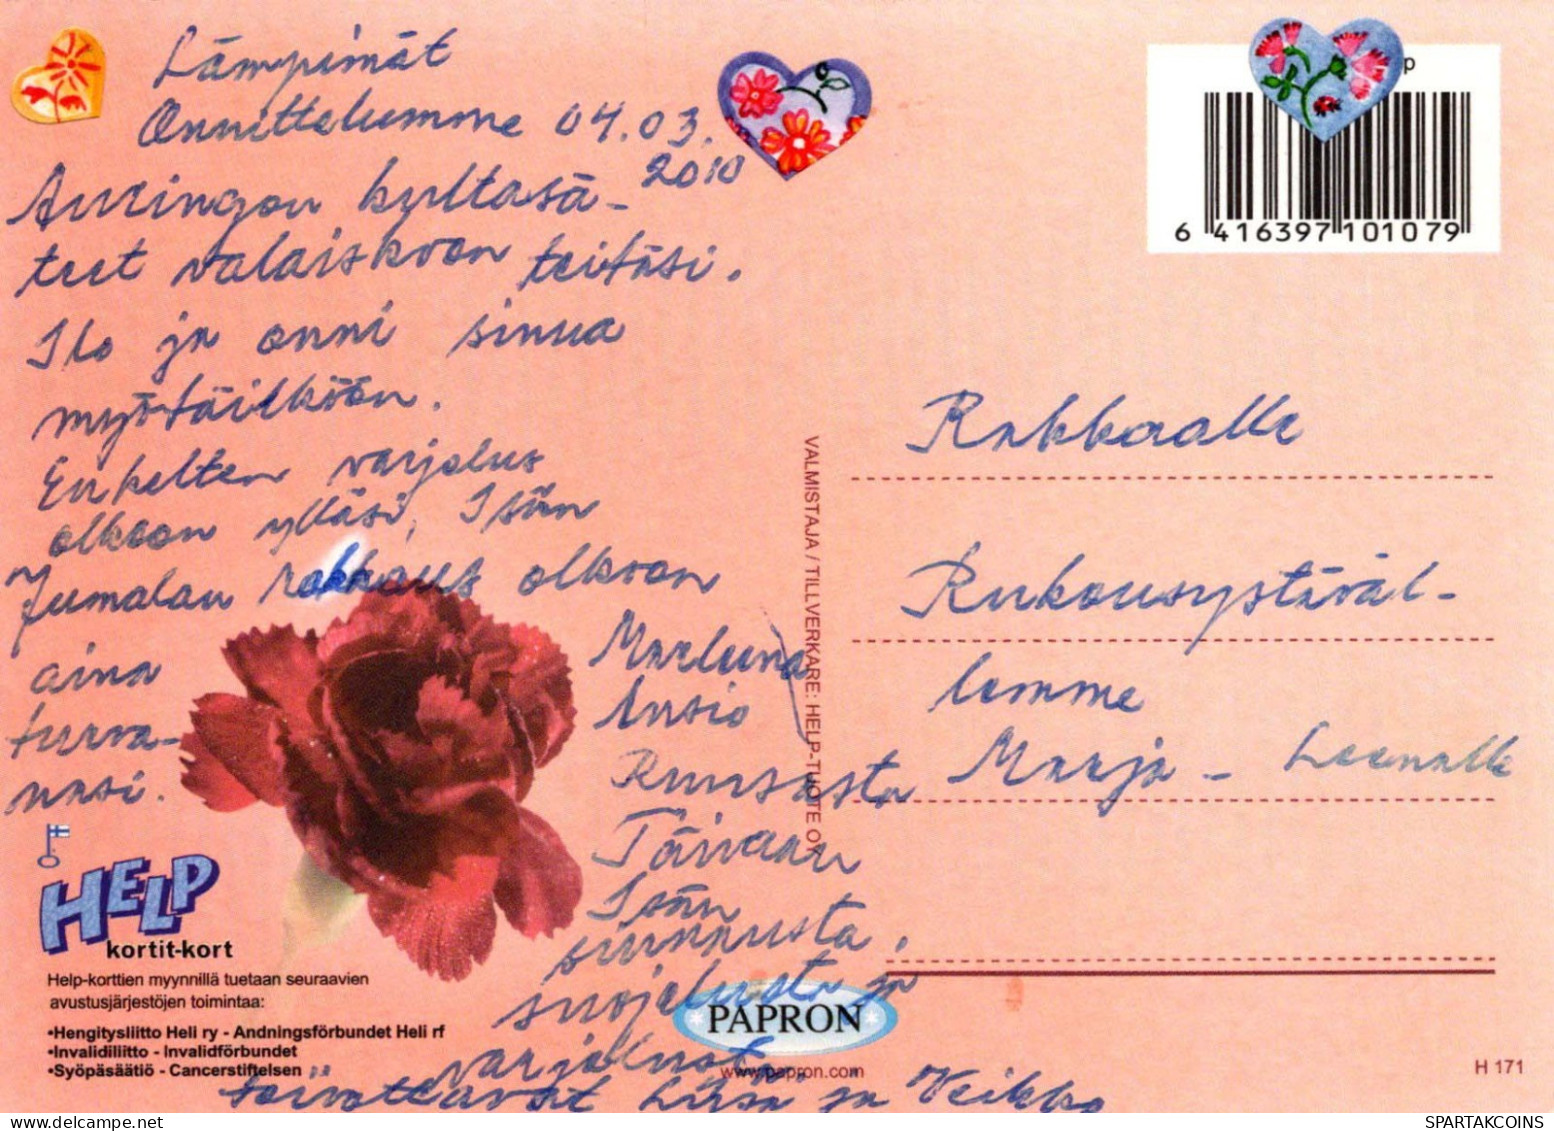 Lämpimät
Onnittelumme 04.03.
2010
Auringon kultasä-
teet valaiskoon teitäsi.
Ilo ja onni sinua
myötäilköön.
Enkelten varjelus
olkoon ylläsi, Isän
Jumalan rakkaus olkoon
aina
turva-
nasi.
Ansio
Ruususta
Taivaan
Isän
siunausta,
suojelusta ja
varjelusta
toivottavat Liisa ja Veikko
p
6 416397 101079
Rakkaalle
Rukousystäväl-
lemme
Marja - Leenalle
VALMISTAJA / TILLVERKARE: HELP-TUOTE OY
HELP
kortit-kort
Help-korttien myynnillä tuetaan seuraavien
avustusjärjestöjen toimintaa:
•Hengitysliitto Heli ry - Andningsförbundet Heli rf
•Invalidiliitto - Invalidförbundet
•Syöpäsäätiö - Cancerstiftelsen
PAPRON
www.papron.com
H 171
SPARTAKCOINS
delcampe.net